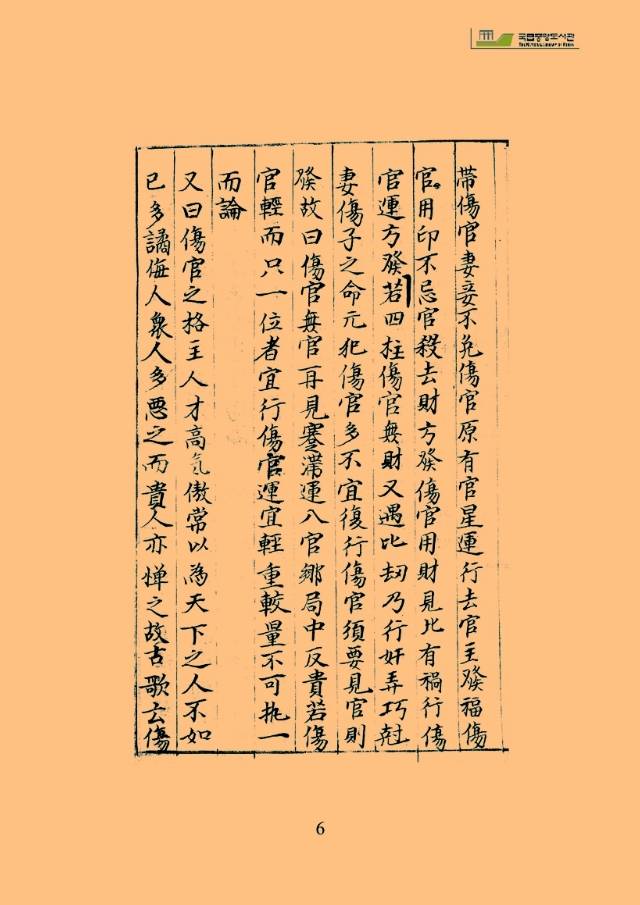 국립중앙도서관
帶傷官妻妾不免傷官原有官星運行去官主發福傷
官用印不忌官殺去財方發傷官用財見比有禍行傷
官運方發若四柱傷官無財又遇比刼乃行奸弄巧尅
妻傷子之命元犯傷官多不宜復行傷官須要見官則
發故曰傷官無官再見蹇滯運入官鄉局中反貴若傷
官輕而只一位者宜行傷官運宜輕重較量不可執一
而論
又曰傷官之格主人才高氣傲常以為天下之人不如
已多譎侮人衆人多惡之而貴人亦憚之故古歌云傷
6